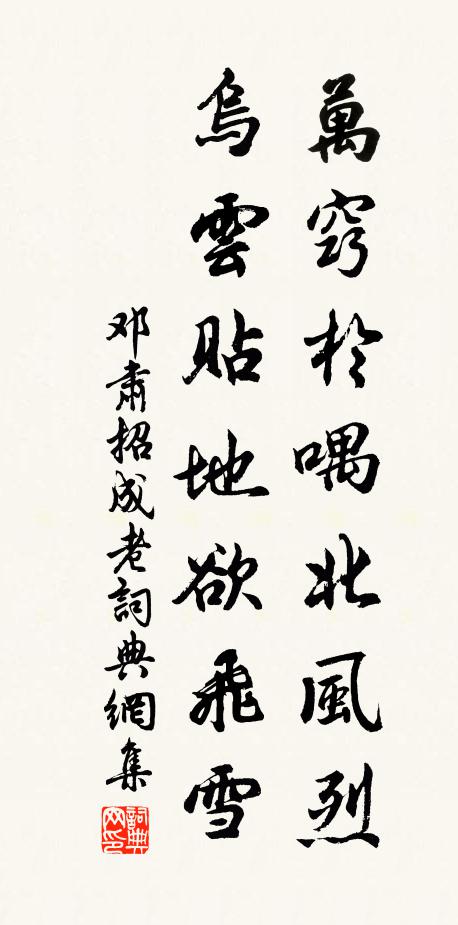 萬竅於喁北風烈
烏雲貼地欲飛雪
邓肅招成老詞典網集
詞典网印